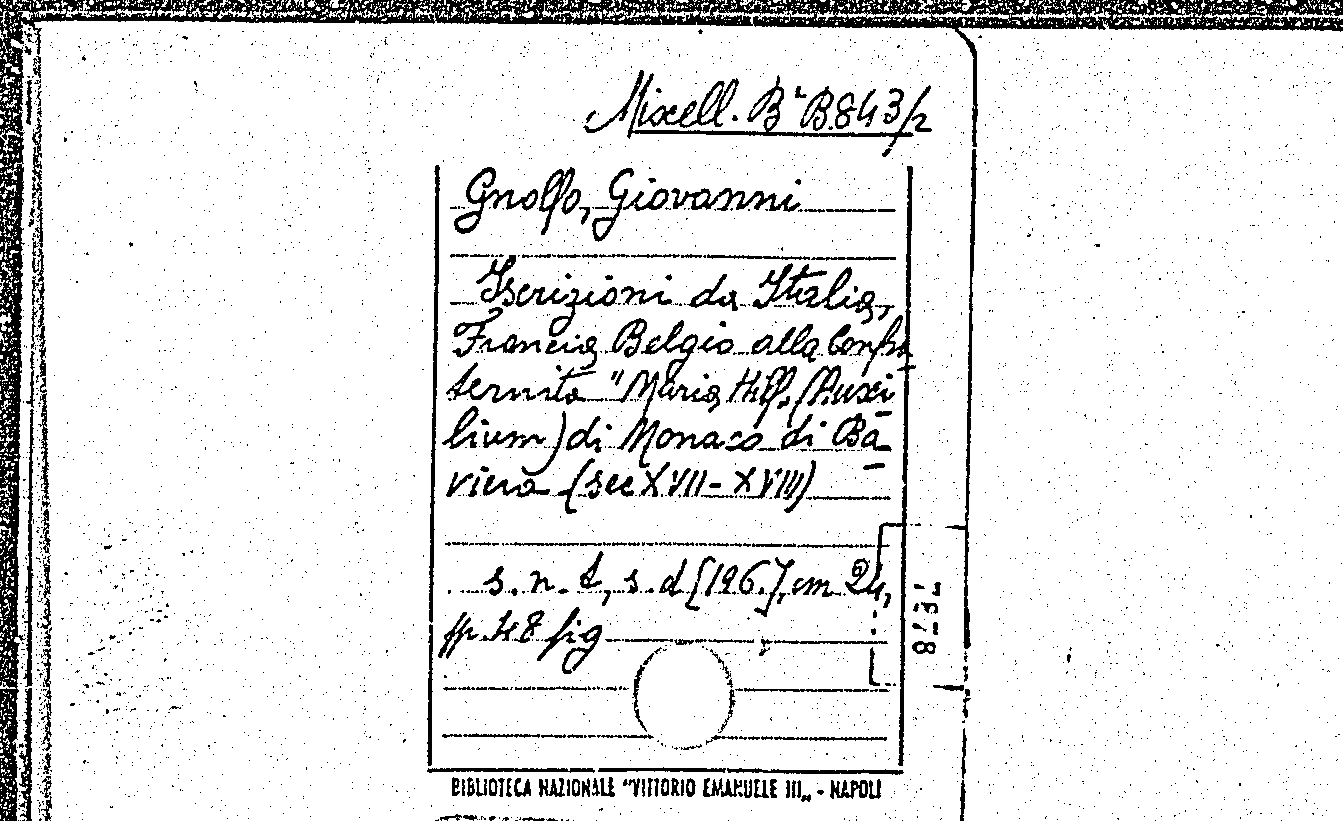 Miscell. Bª B.843/2
Gnolfo, Giovanni
Iscrizioni da Italia,
Francia, Belgio alla Confra
ternita "Maria Hilf, (Auxi
lium) di Monaco di Ba
viera (sec XVII-XVIII)
s. n. t, s. d [196.], cm 24,
pp. 48 fig
BIBLIOTECA NAZIONALE "VITTORIO EMANUELE III„ - NAPOLI